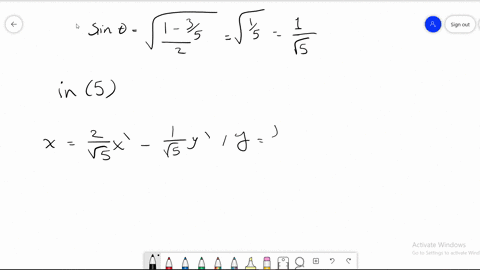 Sign out
sin θ = √((1 - 3/5)/2) = √(1/5) = 1/√5
in (5)
x = 2/√5 x` - 1/√5 y` , y =
Activate Windows
Go to Settings to activate Windows.